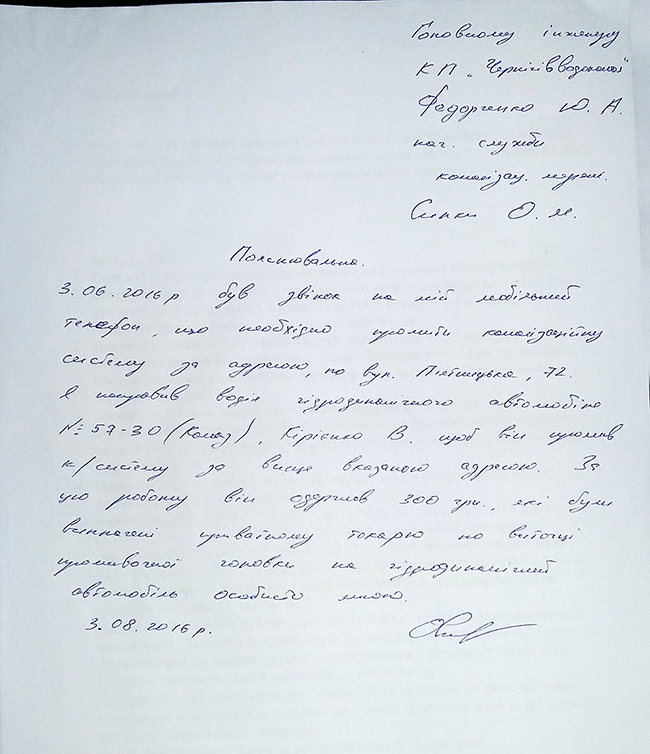 Головному інженеру
КП „Чернігівводоканал"
Федорченко Ю. А.
нач. служби
каналізац. мереж.
Синки О. М.
Пояснювальна.
3.06.2016 р був звінок на мій мобільний
телефон, що необхідно промити каналізаційну
систему за адресою, по вул. П'ятницька, 72.
Я направив водія гідродинамічного автомобіля
№ 57-30 (Камаз), Кірієнко В. щоб він промив
к/систему за вище вказаною адресою. За
цю роботу він одержав 300 грн., які були
виплачені приватному токарю по виточці
промивочної головки на гідродинамічний
автомобіль особисто мною.
3.08.2016 р.